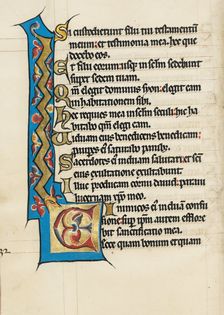 Si custodierint filii tui testamentū
meum: et testimonia mea hec que
docebo eos.
Et filii eorum usque in seculum sedebunt
super sedem tuam.
Qm elegit dominus syon: elegit eam
in habitationem sibi.
Hec requies mea in seculum seculi: hic ha
bitabo qm elegi eam.
Viduam eius benedicens benedicam:
pauperes eius saturabo panibus.
Sacerdotes eius induam salutari: et sci
eius exultatione exultabunt.
Illuc producam cornu dauid: paraui
lucernam xpo meo.
Inimicos eius induam confu
sione: super ipm autem efflore
bit sanctificatio mea.
Ecce quam bonum et quam